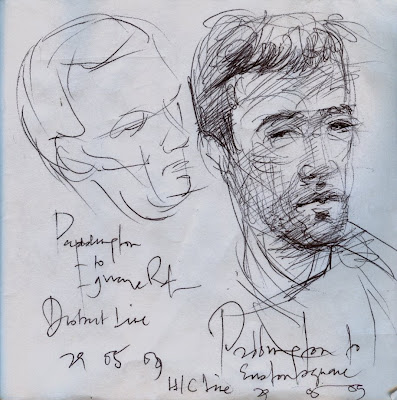 Paddington
to
Edgware Rd
District Line
29 05 09
Paddington to
Euston Square
H/C Line
29 05 09